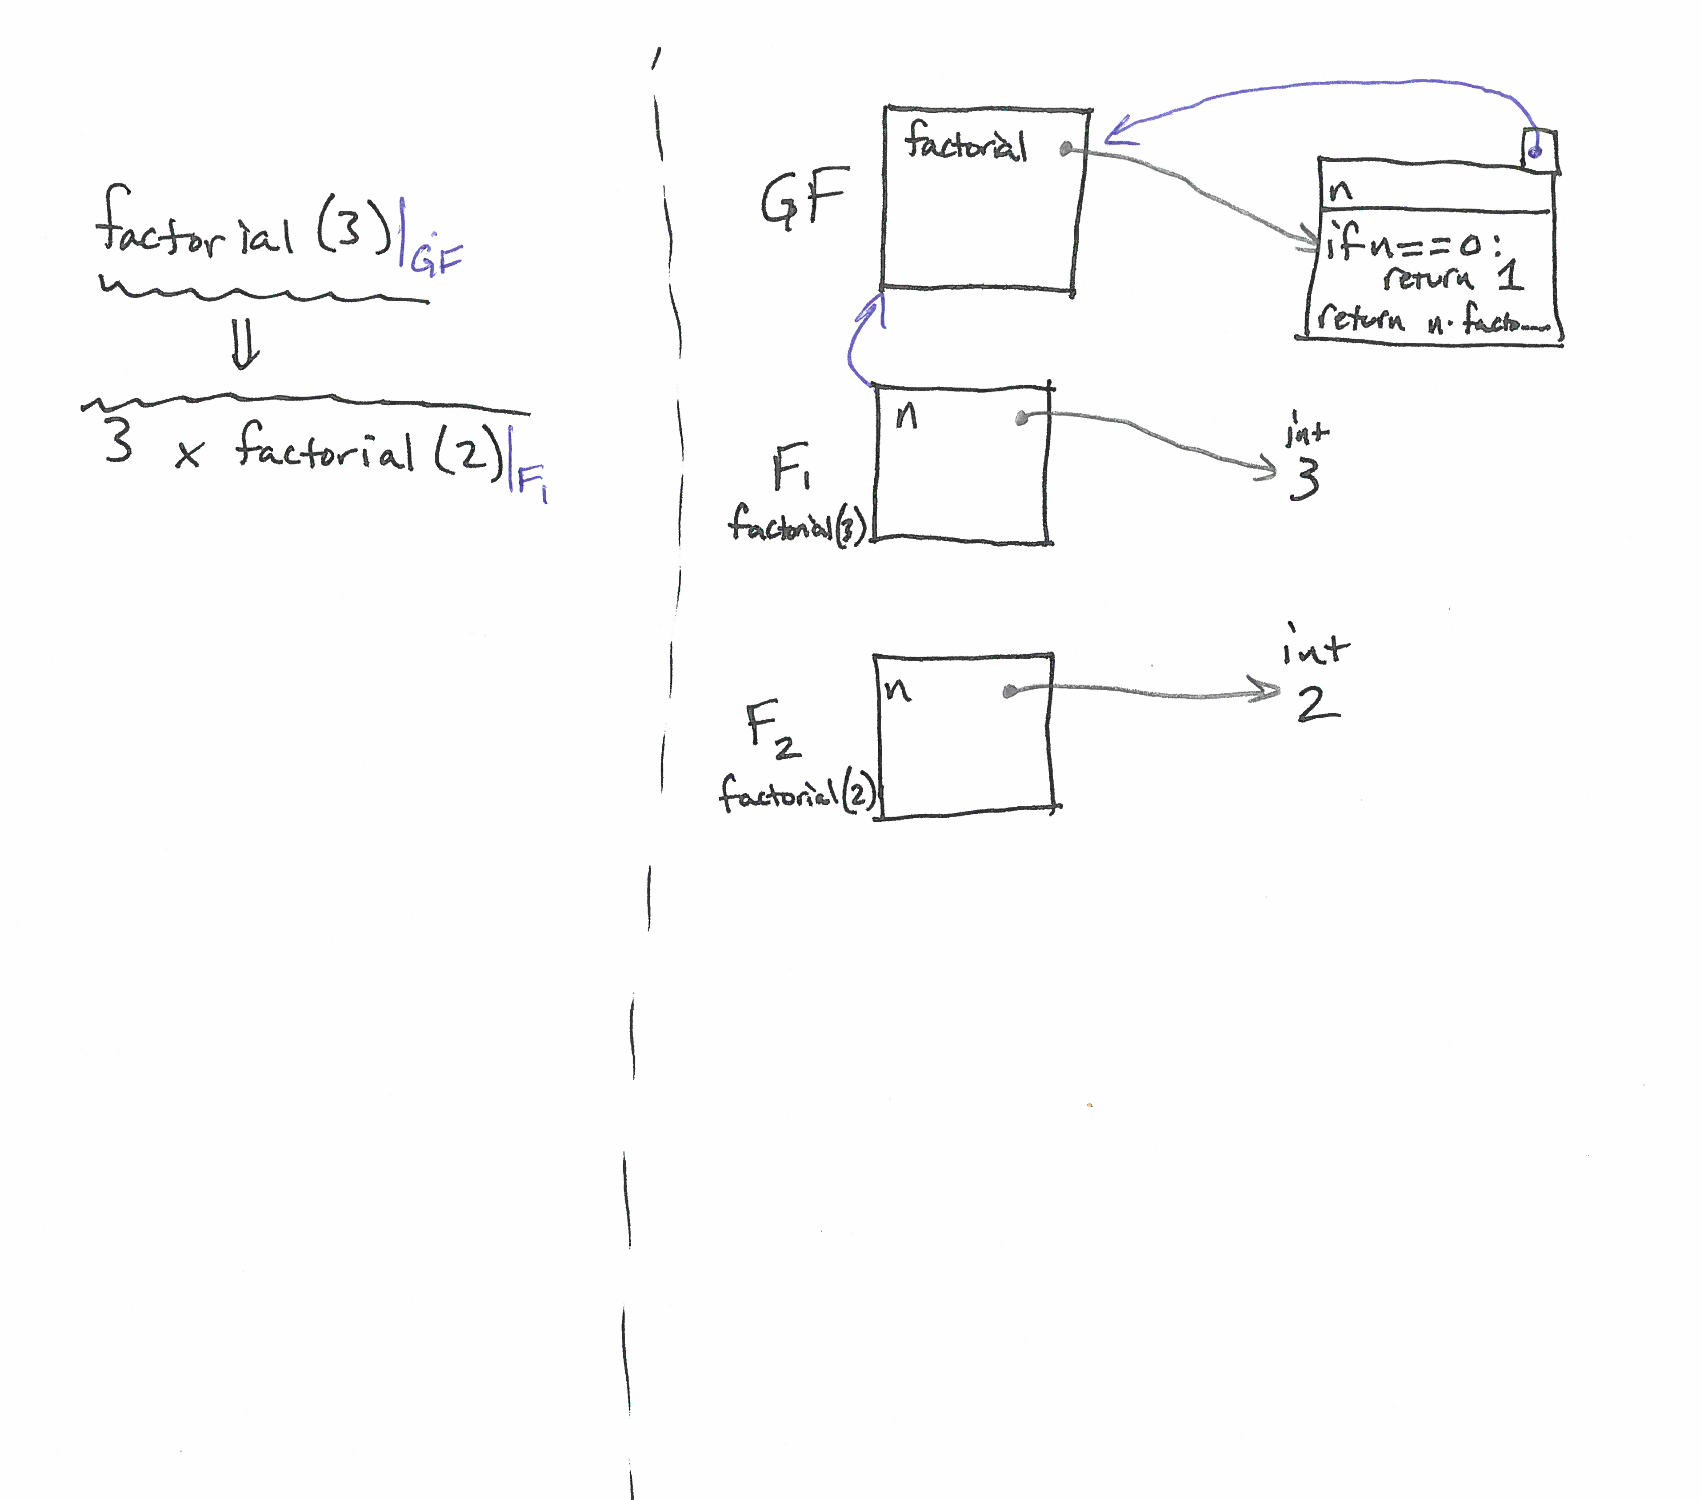 factorial (3)|GF
⇓
3 x factorial (2)|F1
GF
factorial
n
if n==0:
return 1
return n· facto....
F1
factorial(3)
n
int
3
F2
factorial(2)
n
int
2